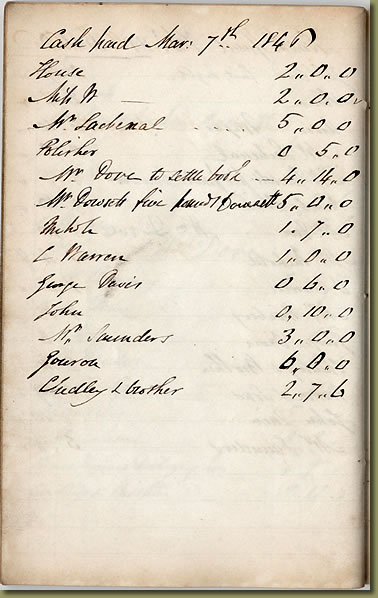 Cash paid Mar: 7th 1846
House 2,,0,,0
Miss W — 2,,0,,0
Mr Lachenal ..... 5,,0,,0
Polisher 0 5,,0
Mr Dove to settle book — 4,,14,,0
Mr Dowsett five pounds Dowsett 5,,0,,0
1,,7,,0
L Warren 1,,0,,0
George Davis 0 6,,0
John 0,,10,,0
Mr Saunders 3,,0,,0
6,,0,,0
Chidley & brother 2,,7,,6